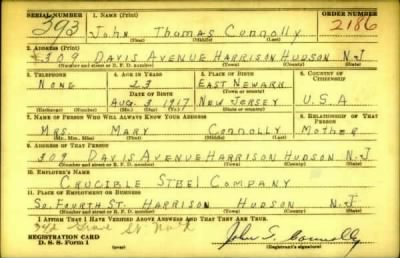 SERIAL NUMBER 1. NAME (Print) ORDER NUMBER
393 John Thomas Connolly 2186
(First) (Middle) (Last)
2. ADDRESS (Print)
309 DAVIS AVENUE HARRISON HUDSON N.J
(Number and street or R. F. D. number) (Town) (County) (State)
3. TELEPHONE 4. AGE IN YEARS 5. PLACE OF BIRTH 6. COUNTRY OF CITIZENSHIP
NONE 23 EAST NEWARK
DATE OF BIRTH (Town or county)
AUG. 3 1917 NEW JERSEY U.S.A
(Exchange) (Number) (Mo.) (Day) (Yr.) (State or country)
7. NAME OF PERSON WHO WILL ALWAYS KNOW YOUR ADDRESS 8. RELATIONSHIP OF THAT PERSON
MRS. MARY CONNOLLY MOTHER
(Mr., Mrs., Miss) (First) (Middle) (Last)
9. ADDRESS OF THAT PERSON
309 DAVIS AVENUE HARRISON HUDSON N.J
(Number and street or R. F. D. number) (Town) (County) (State)
10. EMPLOYER'S NAME
CRUCIBLE STEEL COMPANY
11. PLACE OF EMPLOYMENT OR BUSINESS
SO. FOURTH ST. HARRISON HUDSON N.J
(Number and street or R. F. D. number) (Town) (County) (State)
I AFFIRM THAT I HAVE VERIFIED ABOVE ANSWERS AND THAT THEY ARE TRUE.
REGISTRATION CARD
D. S. S. Form 1 (Registrant's signature)
John T. Connolly